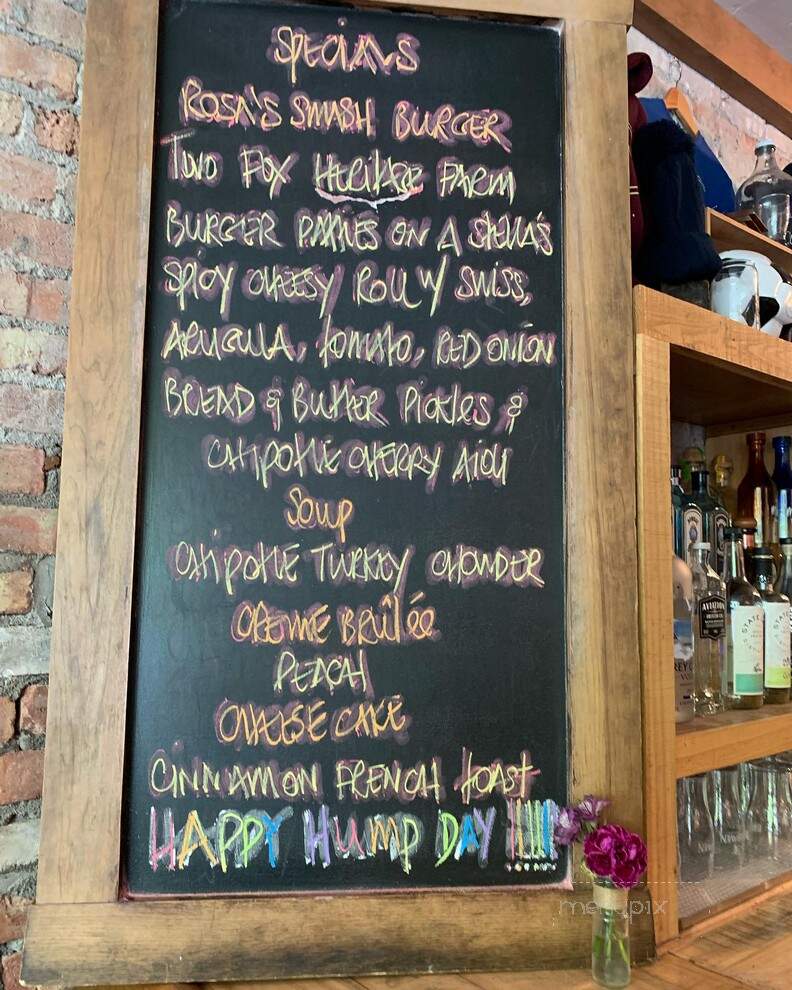 SPECIALS
ROSA'S SMASH BURGER
Two FOX HERITAGE FARM
BURGER PATTIES ON A STELLA'S
SPICY CHEESY ROLL W/ SWISS,
ARUGULA, TOMATO, RED ONION
BREAD & BUTTER PICKLES &
CHIPOTLE CHERRY AIOLI
SOUP
CHIPOTLE TURKEY CHOWDER
CREME BRÛLÉE
PEACH
CHEESE CAKE
CINNAMON FRENCH TOAST
HAPPY HUMP DAY !!!!!
AVIATION
menupix